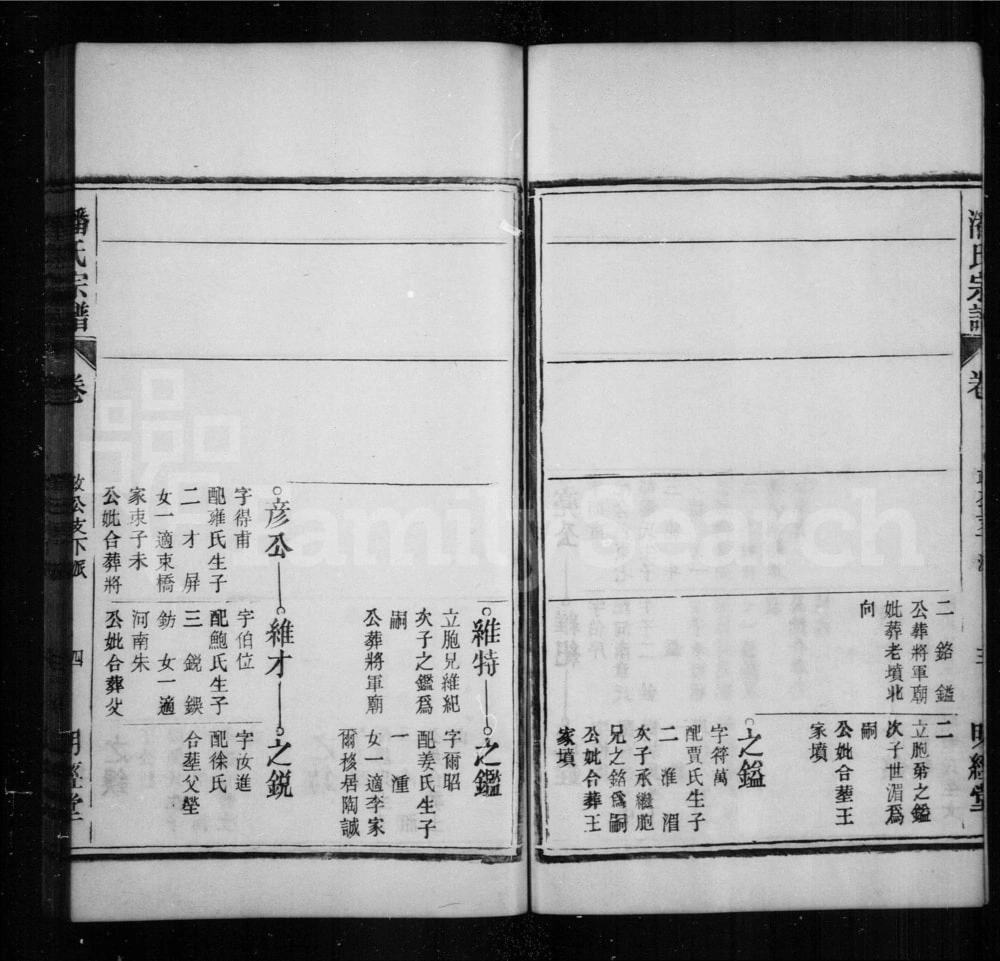 潘氏宗譜
卷
三
明經堂
二 鉻 鎰
公葬將軍廟
妣葬老墳北
向
二
立胞弟之鎰
次子世湄爲
嗣
公妣合塟王
家墳
之鎰
字符萬
配賈氏生子
二 淮 湄
次子承繼胞
兄之鉻爲嗣
公妣合葬王
家墳
維特
立胞兄維紀
次子之鑑爲
嗣
公葬將軍廟
之鑑
字爾昭
配姜氏生子
一 湩
女一適李家
爾移居陶誠
彦公
字得甫
配雍氏生子
二 才 屏
女一適束橋
家束子未
公妣合葬將
維才
字伯位
配鮑氏生子
三 鋭 鍈
鈁 女一適
河南朱
公妣合葬父
之鋭
字汝進
配徐氏
合塟父塋
潘氏宗譜
卷
公支下派
四
明經堂
FamilySearch